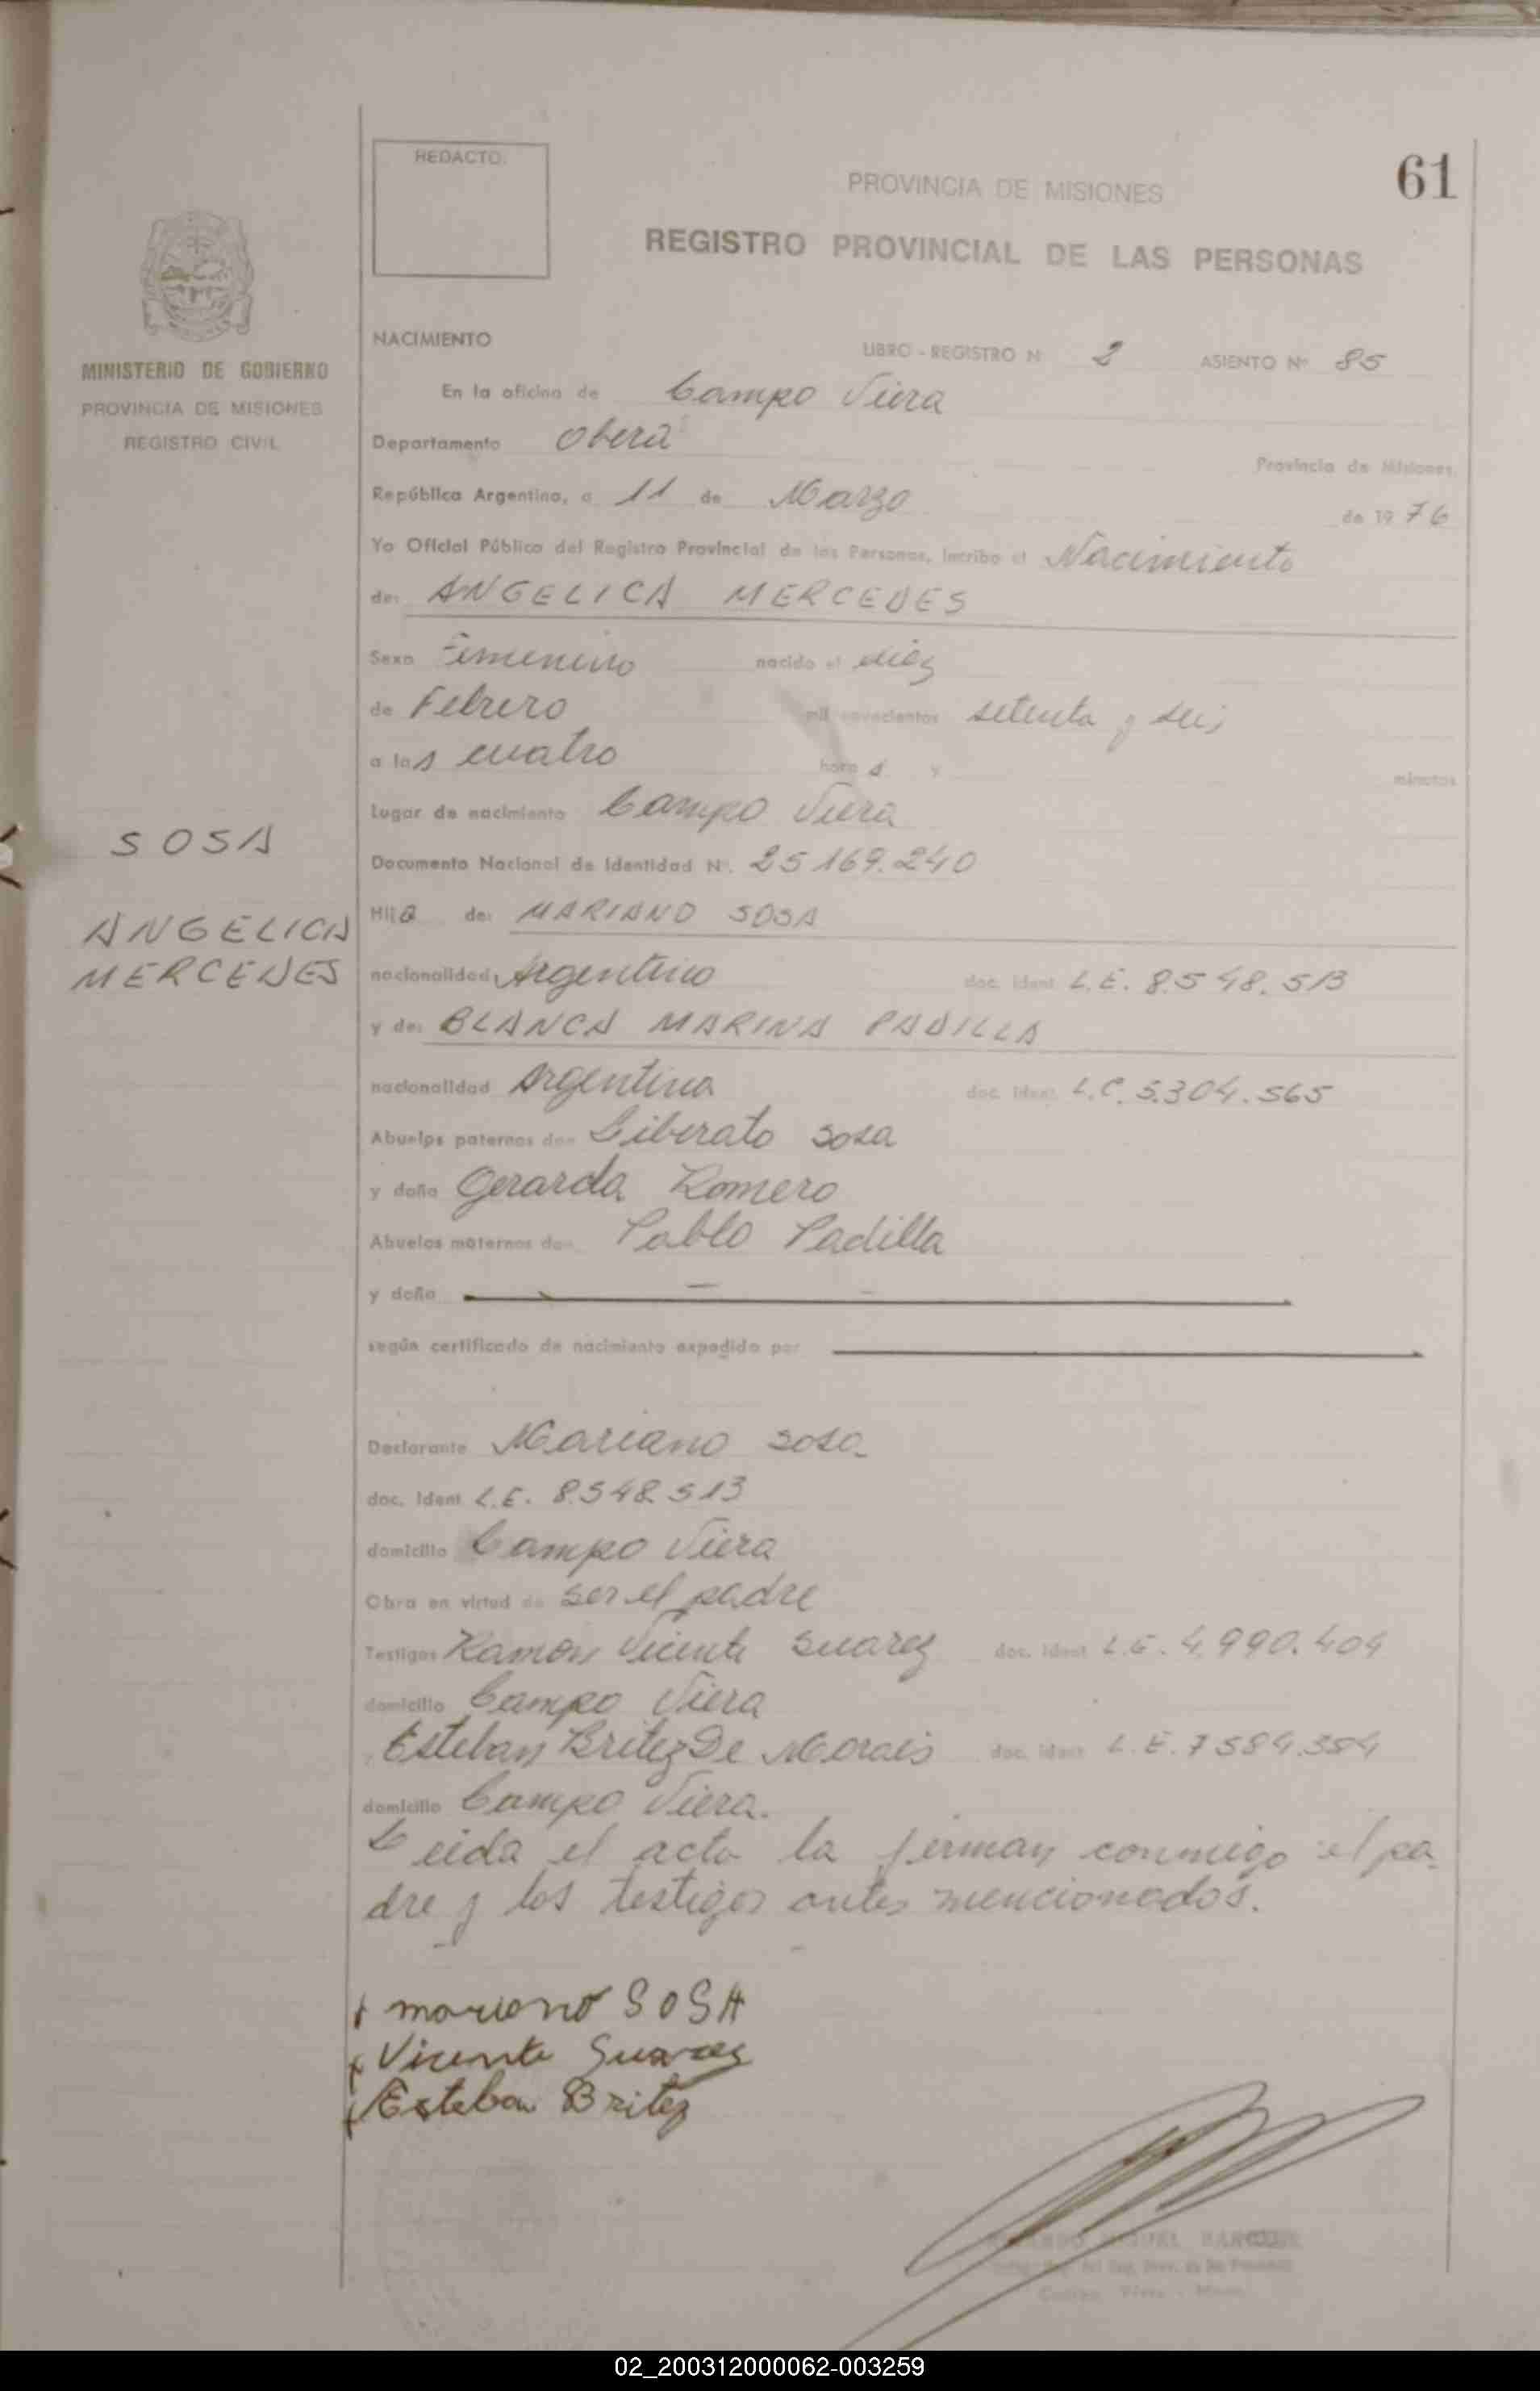 REDACTO.
61
PROVINCIA DE MISIONES
REGISTRO PROVINCIAL DE LAS PERSONAS
MINISTERIO DE GOBIERNO
PROVINCIA DE MISIONES
REGISTRO CIVIL
NACIMIENTO
LIBRO - REGISTRO N 2 ASIENTO Nº 85
En la oficina de Campo Viera
Departamento Oberá
Provincia de Misiones,
República Argentina, a 11 de Marzo de 19 76
Yo Oficial Público del Registro Provincial de las Personas, Incribo el Nacimiento
de: ANGELICA MERCEDES
Sexo Femenino nacido el diez
de Febrero mil novecientos setenta y seis
a las cuatro hora s y minutos
Lugar de nacimiento Campo Viera
Documento Nacional de Identidad Nº. 25.169.240
SOSA
ANGELICA
MERCEDES
Hija de: MARIANO SOSA
nacionalidad: Argentino doc. Ident L.E. 8.548.513
y de: BLANCA MARINA PADILLA
nacionalidad Argentina doc. Ident. L.C. 5.304.565
Abuelos paternos don Liberato Sosa
y doña Gerarda Romero
Abuelos maternos don Pablo Padilla
y doña
según certificado de nacimiento expedido por
Declarante Mariano Sosa
doc. Ident L.E. 8.548.513
domicilio Campo Viera
Obra en virtud de ser el padre
Testigos Ramon Vicente Suarez doc. Ident L.E. 4.990.404
domicilio Campo Viera
y Esteban Britez De Morais doc. Ident L.E. 7584.384
domicilio Campo Viera.
Leida el acta la firman conmigo el pa-
dre y los testigos antes mencionados.
x mariano SOSA
x Vicente Suarez
x Esteban Britez
02_200312000062-003259